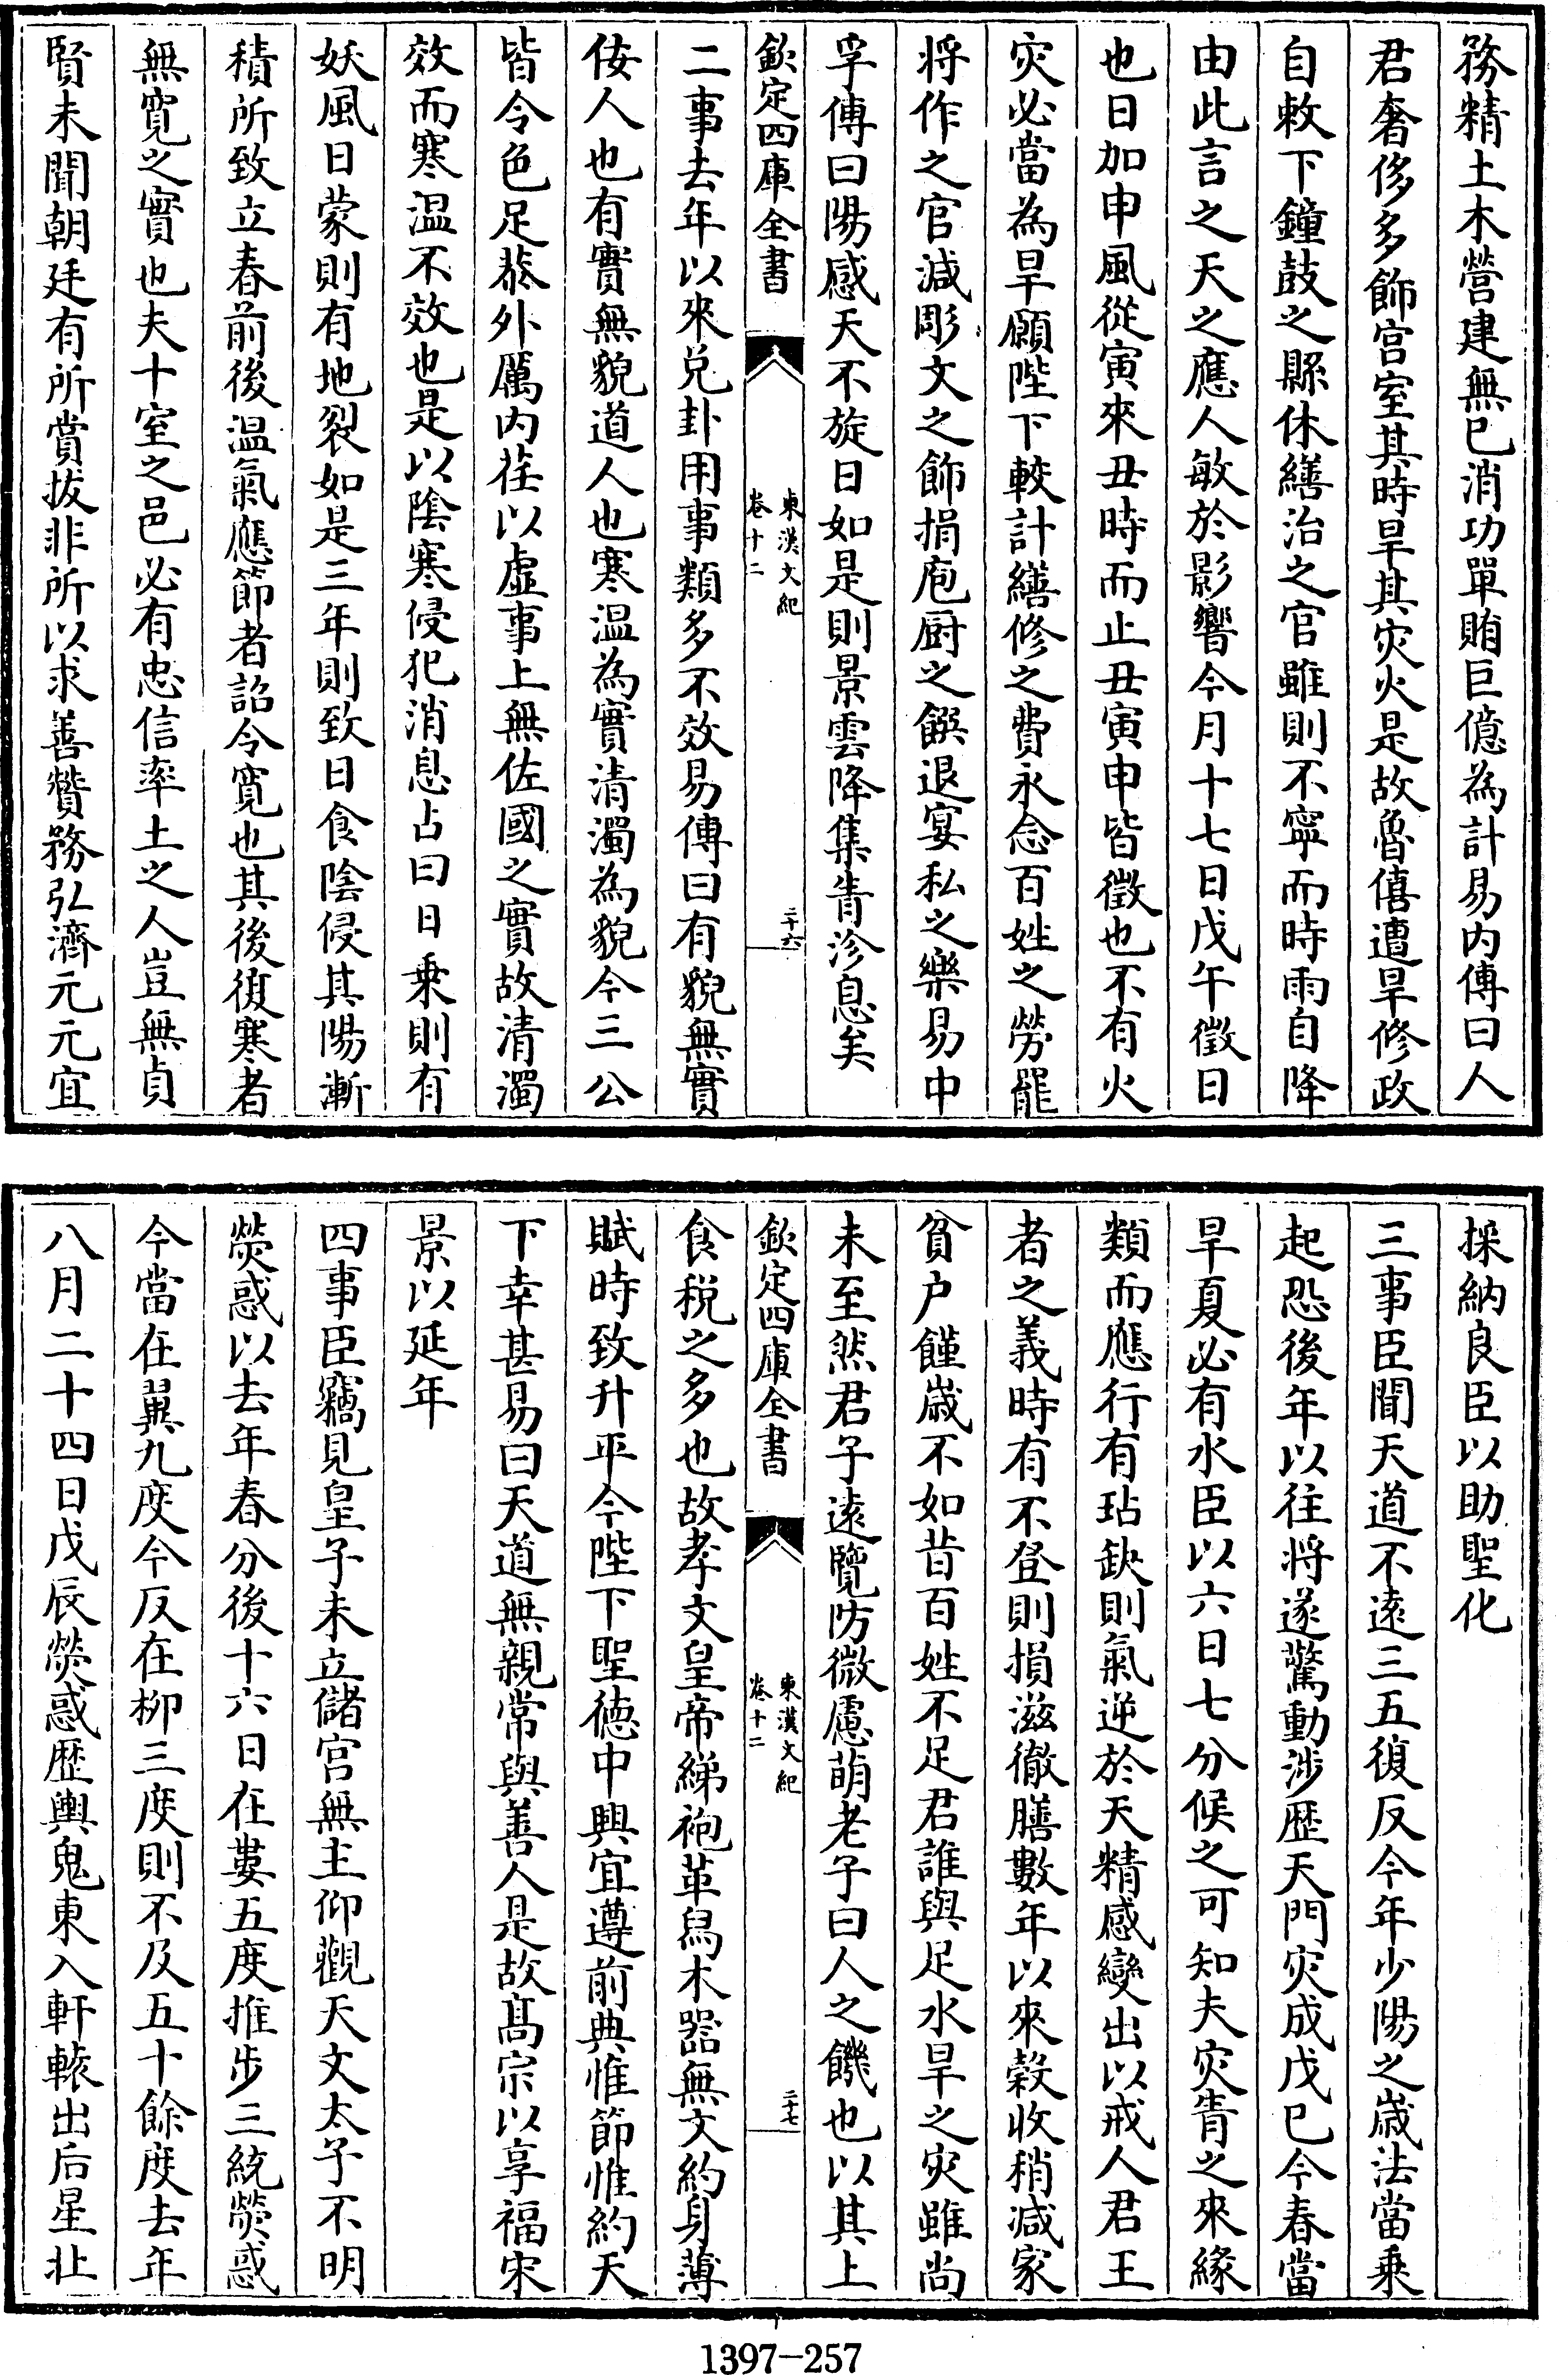 務精土木營建無已消功單賄巨億為計易内傳曰人
君奢侈多飾宫室其時旱其灾火是故魯僖遭旱修政
自敕下鐘鼓之縣休繕治之官雖則不寧而時雨自降
由此言之天之應人敏於影響今月十七日戊午徵日
也日加申風從寅來丑時而止丑寅申皆徵也不有火
灾必當為旱願陛下較計繕修之費永念百姓之勞罷
将作之官減彫文之飾捐庖厨之饌退宴私之樂易中
孚傳曰陽感天不旋日如是則景雲降集眚沴息矣
欽定四庫全書
東漢文紀
卷十二
二十六
二事去年以來兑卦用事類多不效易傳曰有貌無實
佞人也有實無貌道人也寒温為實清濁為貌今三公
皆令色足恭外厲内荏以虚事上無佐國之實故清濁
效而寒温不效也是以陰寒侵犯消息占曰日乗則有
妖風日蒙則有地裂如是三年則致日食陰侵其陽漸
積所致立春前後温氣應節者詔令寛也其後復寒者
無寛之實也夫十室之邑必有忠信率土之人豈無貞
賢未聞朝廷有所賞拔非所以求善贊務弘濟元元宜
採納良臣以助聖化
三事臣聞天道不遠三五復反今年少陽之歲法當乗
起恐後年以往将遂驚動涉歴天門灾成戊已今春當
旱夏必有水臣以六日七分候之可知夫灾眚之來緣
類而應行有玷缺則氣逆於天精感變出以戒人君王
者之義時有不登則損滋徹膳數年以來榖收稍減家
貧户饉歲不如昔百姓不足君誰與足水旱之灾雖尚
未至然君子遠覽防微慮萌老子曰人之饑也以其上
欽定四庫全書
東漢文紀
卷十二
二十七
食税之多也故孝文皇帝綈袍革舄木器無文約身薄
賦時致升平今陛下聖徳中興宜遵前典惟節惟約天
下幸甚易曰天道無親常與善人是故髙宗以享福宋
景以延年
四事臣竊見皇子未立儲宫無主仰觀天文太子不明
熒惑以去年春分後十六日在婁五度推步三統熒惑
今當在翼九度今反在柳三度則不及五十餘度去年
八月二十四日戊辰熒惑歴輿鬼東入軒轅出后星北
1397-257